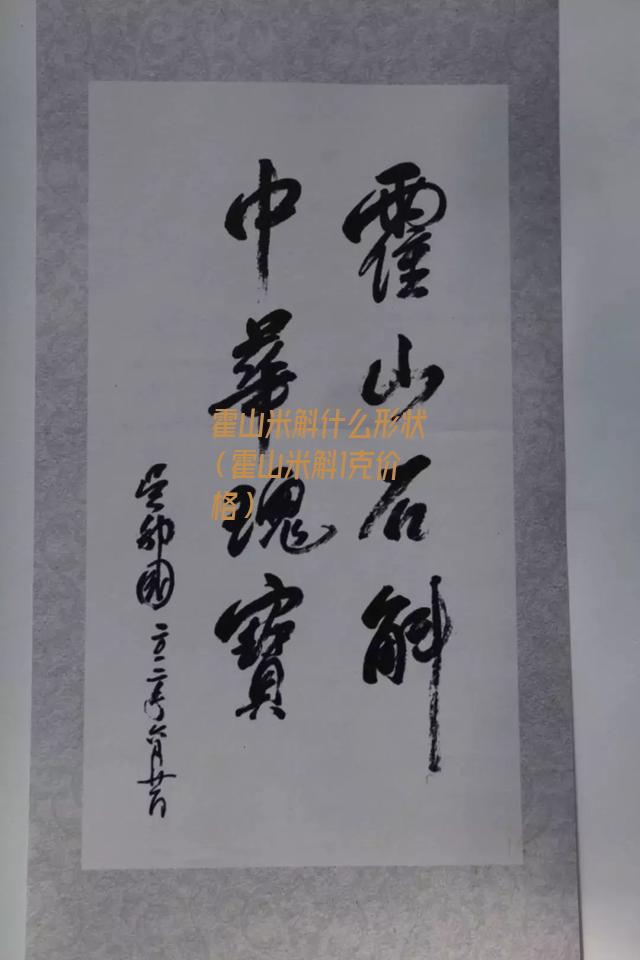 霍山石斛
中華瑰寶
吴邦國
年六月廿
霍山米斛什么形状
（霍山米斛1克价
格）